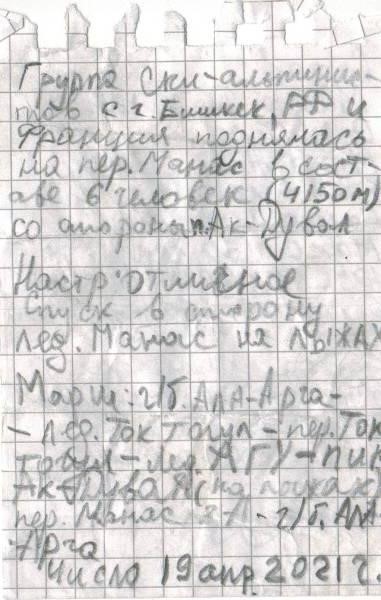 Группа Ски-альпинис-
тов с г. Бишкек, РФ и
Франция поднялась
на пер. Манас в сост-
аве 6 человек (4150м)
со стороны п. Ак-Дувал
Настр: отличное
Спуск в сторону
лед. Манас на лыжах
Марш: г/б. Ала-Арча-
- Лед. Токтогул - пер. Ток
тогул - лед. АГУ - пик
Ак-Дувал (на лыжах)
пер. Манас - г/б. Ала-
Арча
Число 19 апр. 2021 г.